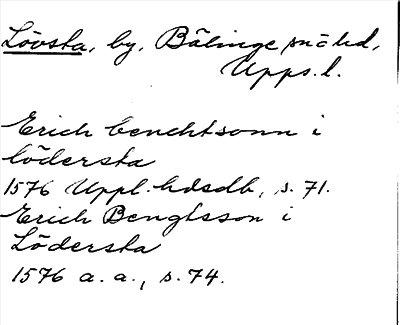 Lövsta, by, Bälinge sn o hd,
Upps.l.
Erich benchtsonn i
lödersta
1576 Uppl.hdsdb, s. 71.
Erich Bengtsson i
Lödersta
1576 a.a., s. 74.